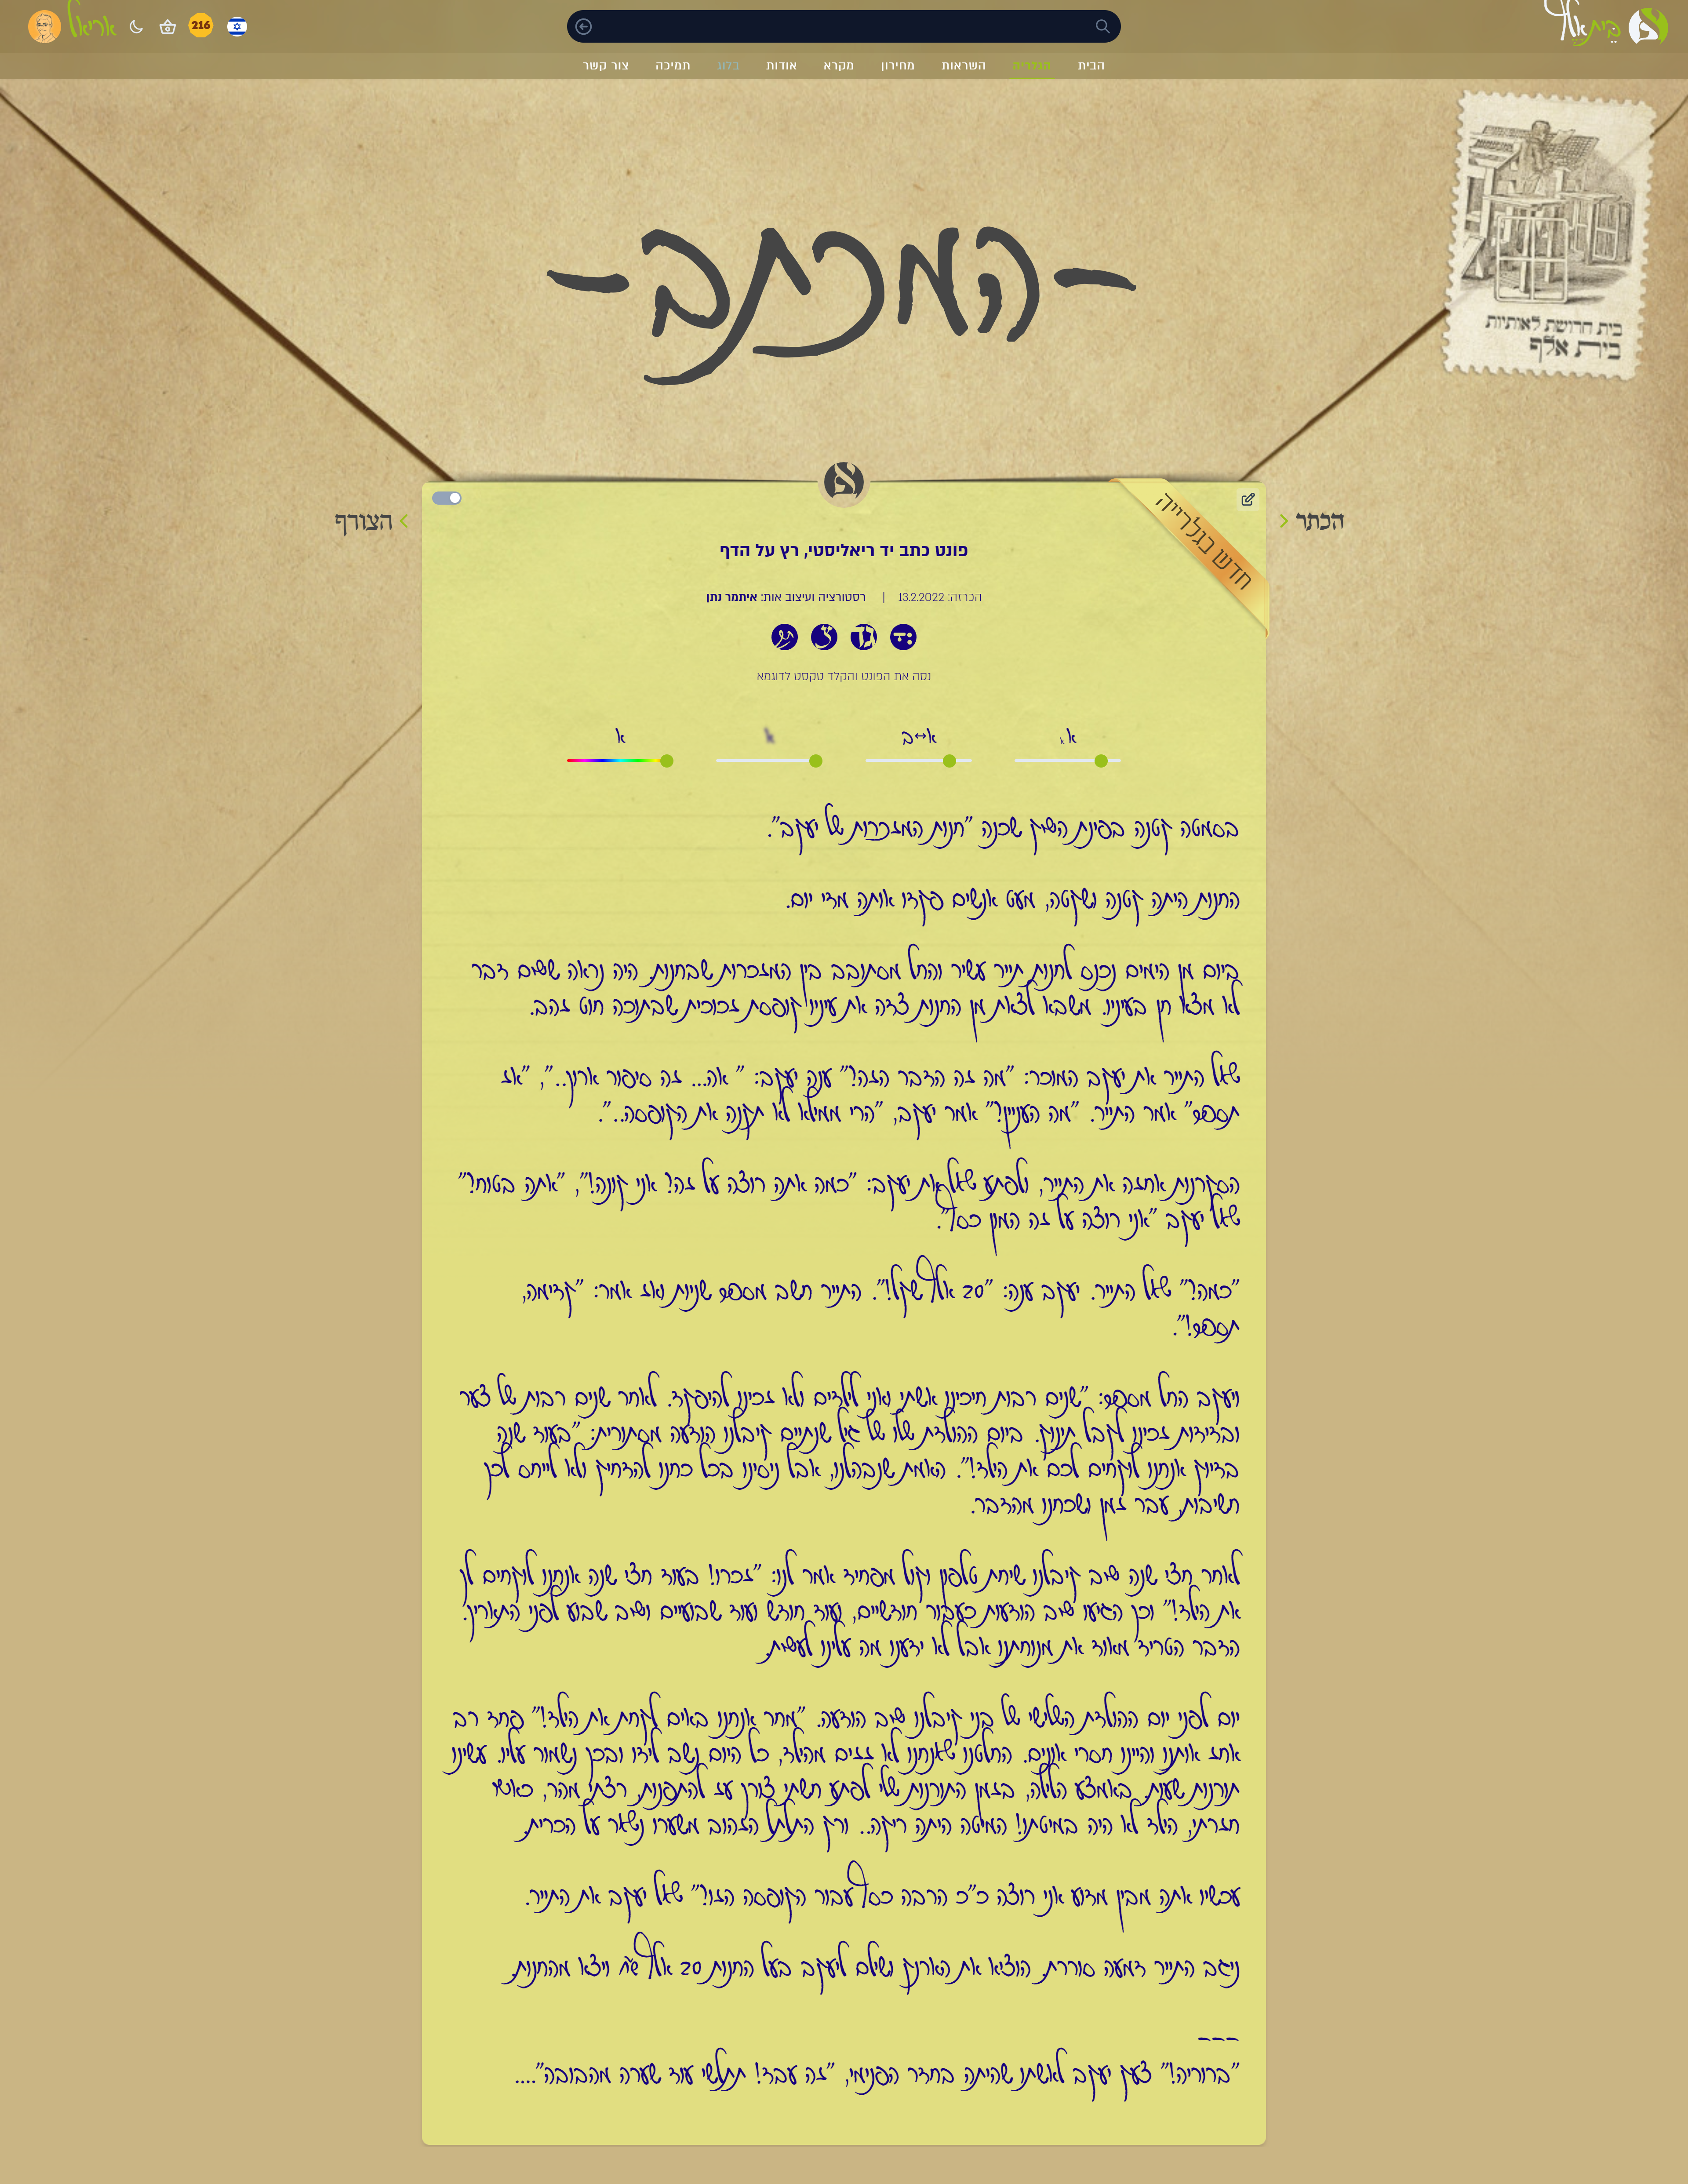 בֵּיתאָלֶף
216
אריאל
הבית הגלריה השראות מחירון מקרא אודות בלוג תמיכה צור קשר
בית חרושת לאותיות
בית אלף
-המכתב-
הכתר
הצורף
חדש בגלרייה
פונט כתב יד ריאליסטי, רץ על הדף
הכרזה: 13.2.2022 | רסטורציה ועיצוב אות: איתמר נתן
נסה את הפונט והקלד טקסט לדוגמא
א א
א↔ב
א
א
בסמטה קטנה בפינת השוק שכנה "חנות המזכרות של יעקב".
החנות היתה קטנה ושקטה, מעט אנשים פקדו אותה מדי יום.
ביום מן הימים נכנס לחנות תייר עשיר והחל מסתובב בין המזכרות שבחנות. היה נראה ששום דבר
לא מצא חן בעיניו. משבא לצאת מן החנות צדה את עיניו קופסת זכוכית שבתוכה חוט זהב.
שאל התייר את יעקב המוכר: "מה זה הדבר הזה?" ענה יעקב: " אה... זה סיפור ארוך..", "אז
תספר" אמר התייר. "מה העניין?" אמר יעקב, "הרי ממילא לא תקנה את הקופסה..".
הסקרנות אחזה את התייר, ולפתע שאל את יעקב: "כמה אתה רוצה על זה? אני קונה!", "אתה בטוח?"
שאל יעקב "אני רוצה על זה המון כסף".
"כמה?" שאל התייר. יעקב ענה: "20 אלף שקל!". התייר חשב מספר שניות ואז אמר: "קדימה,
תספר!".
ויעקב החל מספר: "שנים רבות חיכינו אשתי ואני לילדים ולא זכינו להיפקד. לאחר שנים רבות של צער
ובדידות זכינו לקבל תינוק. ביום ההולדת שלו של גיל שנתיים קיבלנו הודעה מסתורית: "בעוד שנה
בדיוק אנחנו לוקחים לכם את הילד!". האמת שנבהלנו, אבל ניסינו בכל כחנו להדחיק ולא לייחס לכך
חשיבות, עבר זמן ושכחנו מהדבר.
לאחר חצי שנה שוב קיבלנו שיחת טלפון וקול מפחיד אמר לנו: "זכרו! בעוד חצי שנה אנחנו לוקחים לך
את הילד!" וכך הגיעו שוב הודעות כעבור חודשיים, ועוד חודש ועוד שבועיים ושוב שבוע לפני התאריך.
הדבר הטריד מאוד את מנוחתנו אבל לא ידענו מה עלינו לעשות.
יום לפני יום ההולדת השלישי של בני קיבלנו שוב הודעה. "מחר אנחנו באים לקחת את הילד!" פחד רב
אחז אותנו והיינו חסרי אונים. החלטנו שאנחנו לא זזים מהילד, כל היום נשב לידו ובכך נשמור עליו. עשינו
תורנות שעות. באמצע הלילה, בזמן התורנות שלי לפתע חשתי צורך עז להתפנות, רצתי מהר, כאשר
חזרתי, הילד לא היה במיטתו! המיטה היתה ריקה.. ורק התלתל הזהוב משערו נשאר על הכרית.
עכשיו אתה מבין מדוע אני רוצה כ"כ הרבה כסף עבור הקופסה הזו?" שאל יעקב את התייר.
ניגב התייר דמעה סוררת, הוציא את הארנק ושילם ליעקב בעל החנות 20 אלף ש"ח ויצא מהחנות.
---
"ברוריה!" צעק יעקב לאשתו שהיתה בחדר הפנימי, "זה עבד! תתלשי עוד שערה מהבובה"....